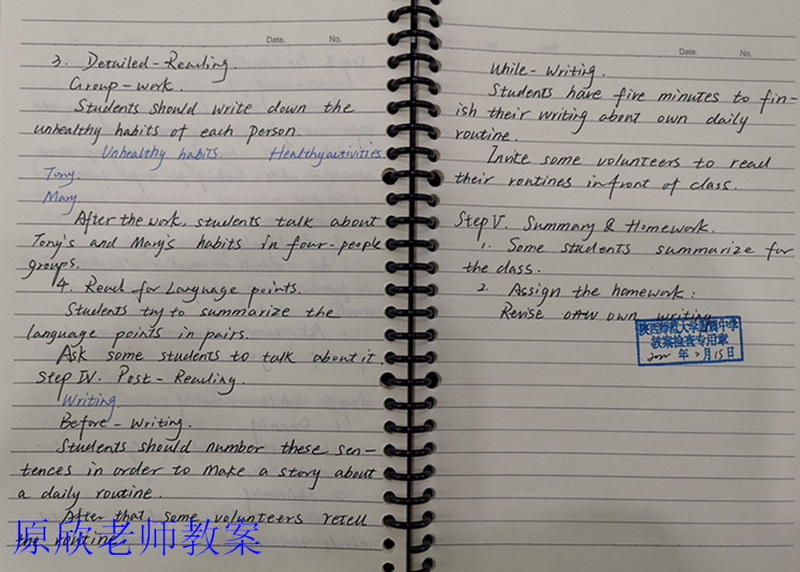 Date. No.
3. Detailed-Reading.
Group-work.
Students should write down the
unhealthy habits of each person.
Unhealthy habits. Healthy activities.
Tony.
Mary
After the work, students talk about
Tony's and Mary's habits in four-people
groups.
4. Read for Language points.
Students try to summarize the
language points in pairs.
Ask some students to talk about it
Step IV. Post-Reading.
Writing.
Before-Writing.
Students should number these sen-
tences in order to make a story about
a daily routine.
After that some volunteers retell
the routine.
原欣老师教案
Date. No.
While-Writing.
Students have five minutes to fin-
ish their writing about own daily
routine.
Invite some volunteers to read
their routines in front of class.
Step V. Summary & Homework.
1. Some students summarize for
the class.
2. Assign the homework:
Revise own writing
陕西师范大学附属中学
教案检查专用章
年 月15日